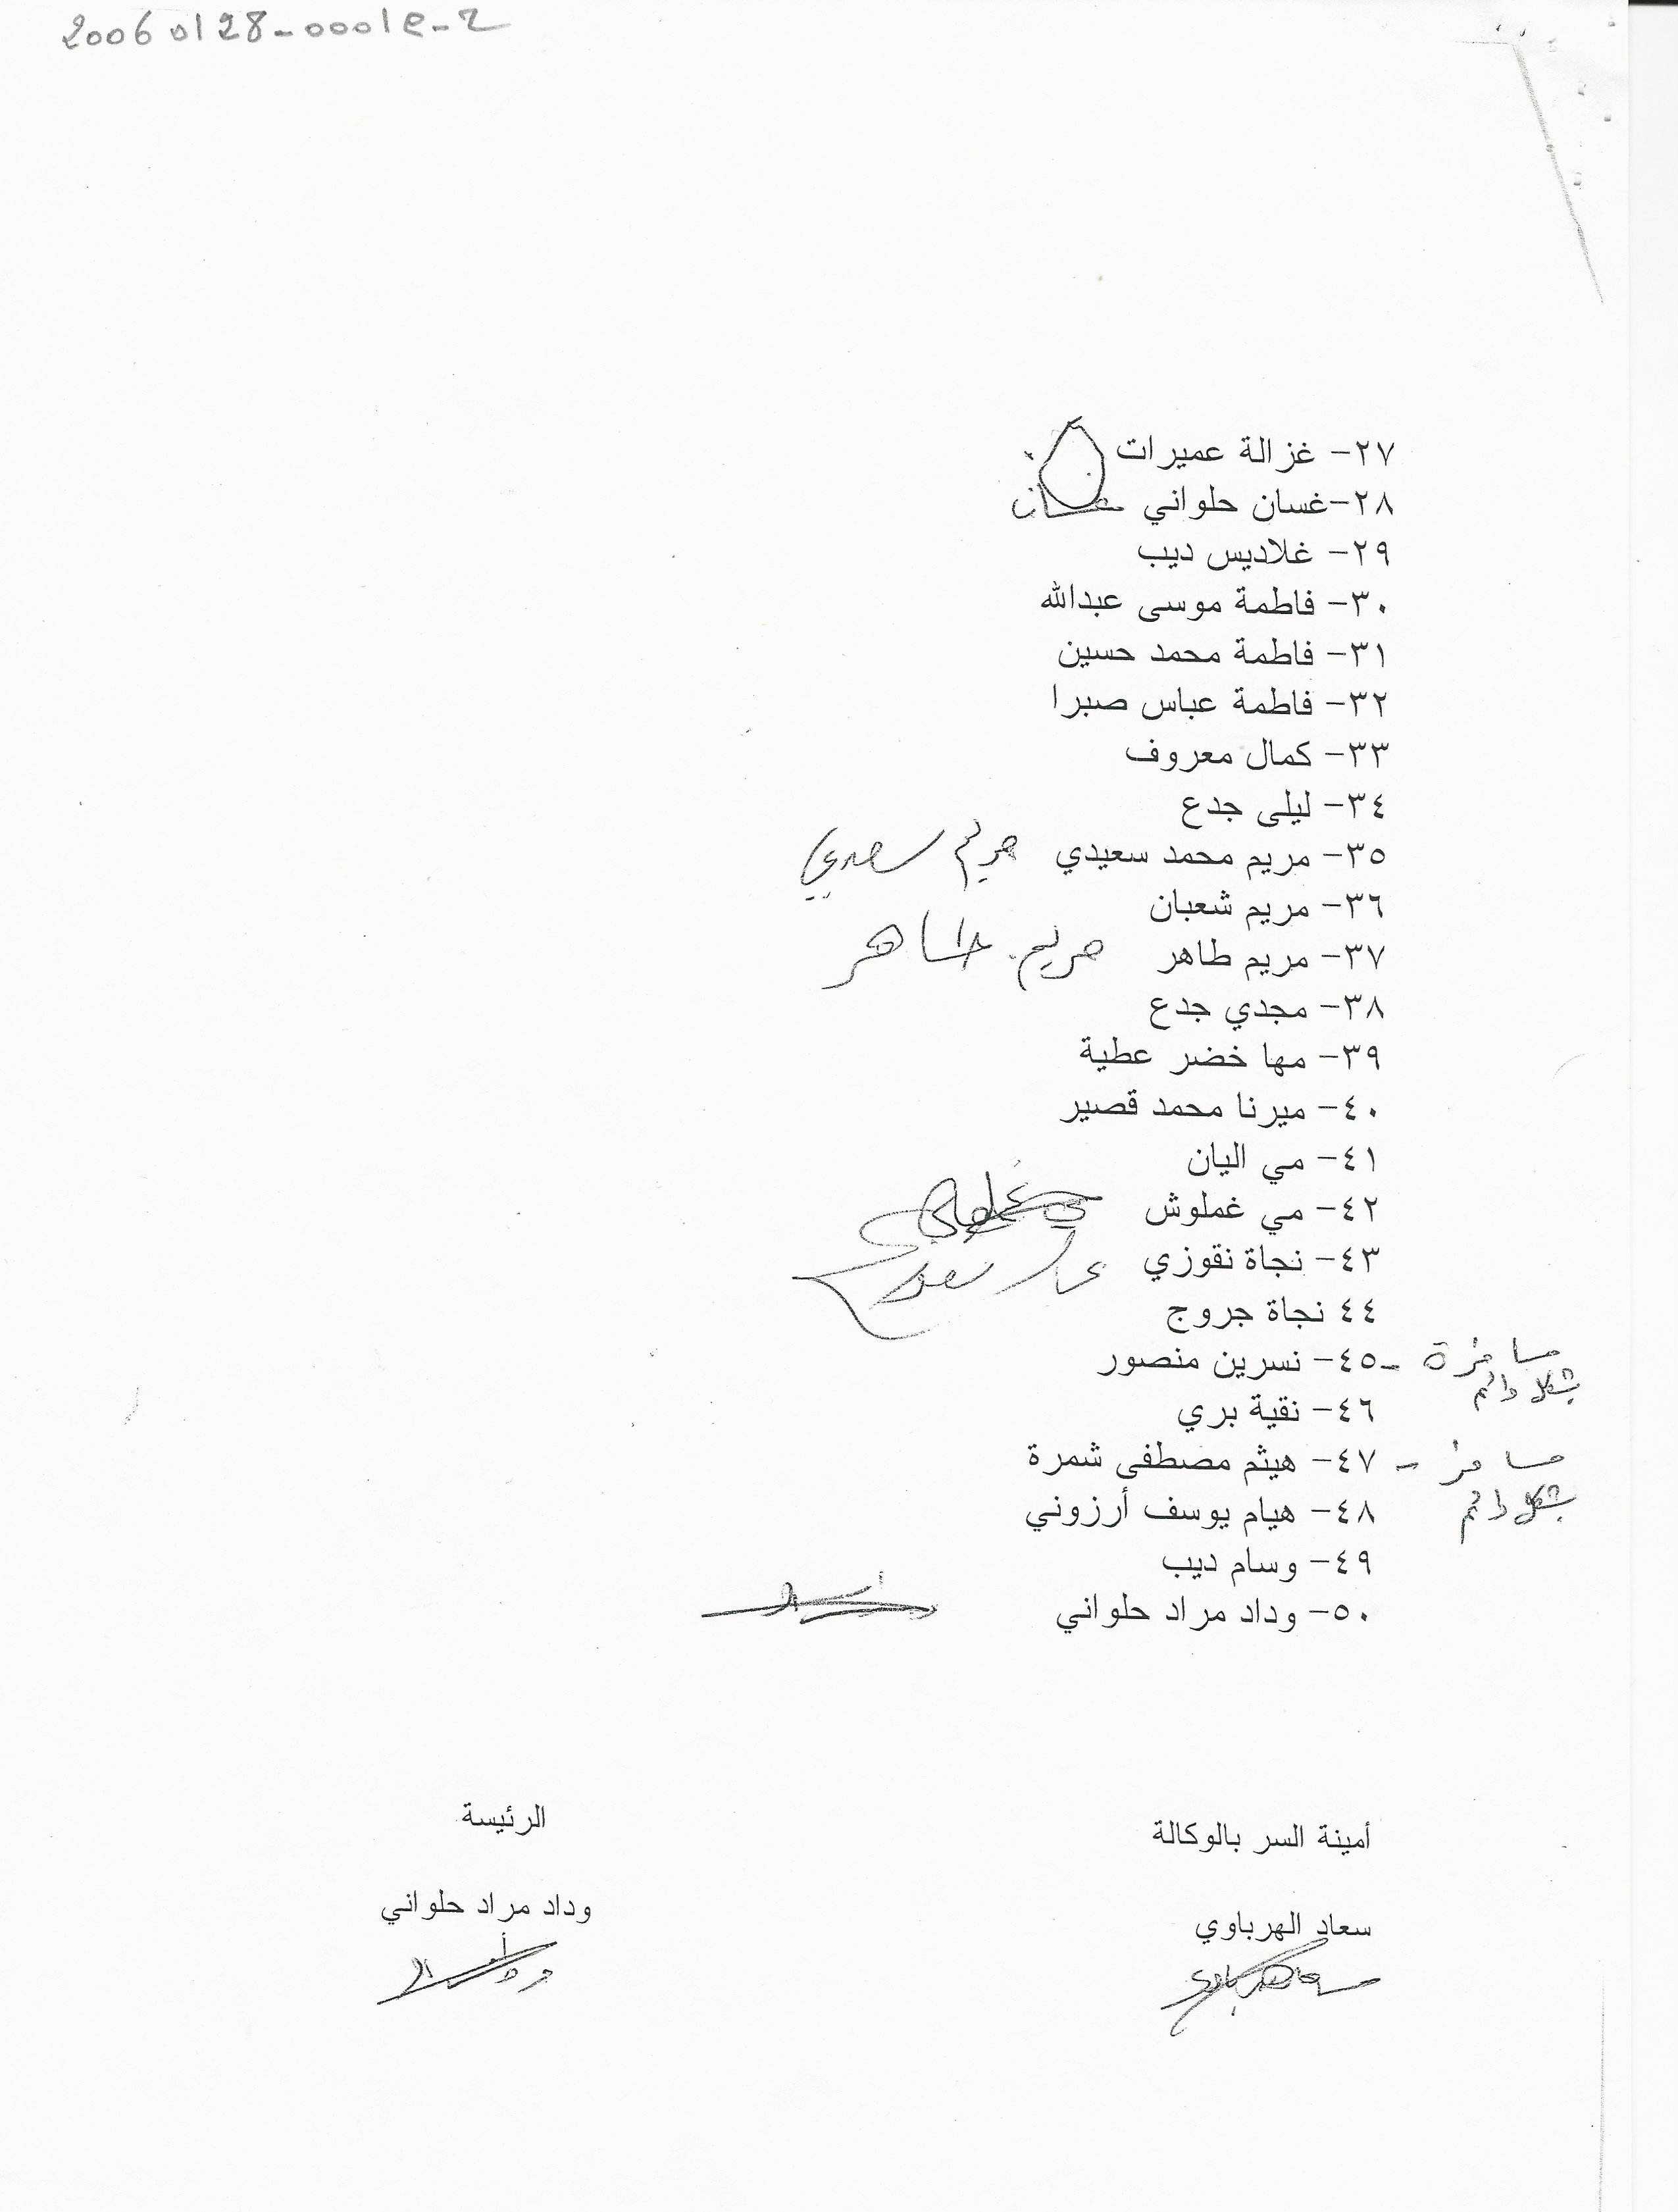 20060128-00019-2
٢٧- غزالة عميرات
٢٨-غسان حلواني غسان
٢٩- غلاديس ديب
٣٠- فاطمة موسى عبدالله
٣١- فاطمة محمد حسين
٣٢- فاطمة عباس صبرا
٣٣- كمال معروف
٣٤- ليلى جدع
٣٥- مريم محمد سعيدي مريم سعيدي
٣٦- مريم شعبان
٣٧- مريم طاهر مريم طاهر
٣٨- مجدي جدع
٣٩- مها خضر عطية
٤٠- ميرنا محمد قصير
٤١- مي اليان
٤٢- مي غملوش
٤٣- نجاة نقوزي
٤٤ نجاة جروج
مسافرة -٤٥- نسرين منصور
بشكل دائم
٤٦- نقية بري
مسافر - ٤٧- هيثم مصطفى شمرة
بشكل دائم
٤٨- هيام يوسف أرزوني
٤٩- وسام ديب
٥٠- وداد مراد حلواني
أمينة السر بالوكالة
سعاد الهرباوي
الرئيسة
وداد مراد حلواني